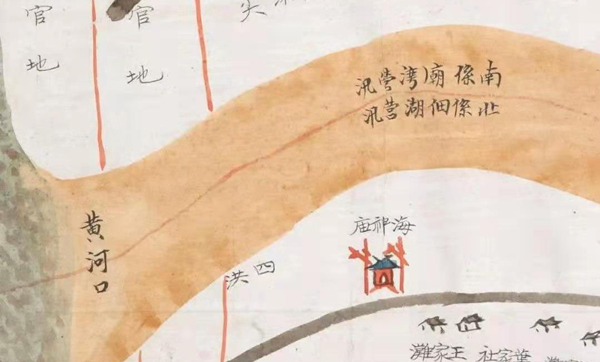 尖
官地
官地
南係廟湾營汛
北係佃湖营汛
黄河口
海神庙
四洪
王家灘